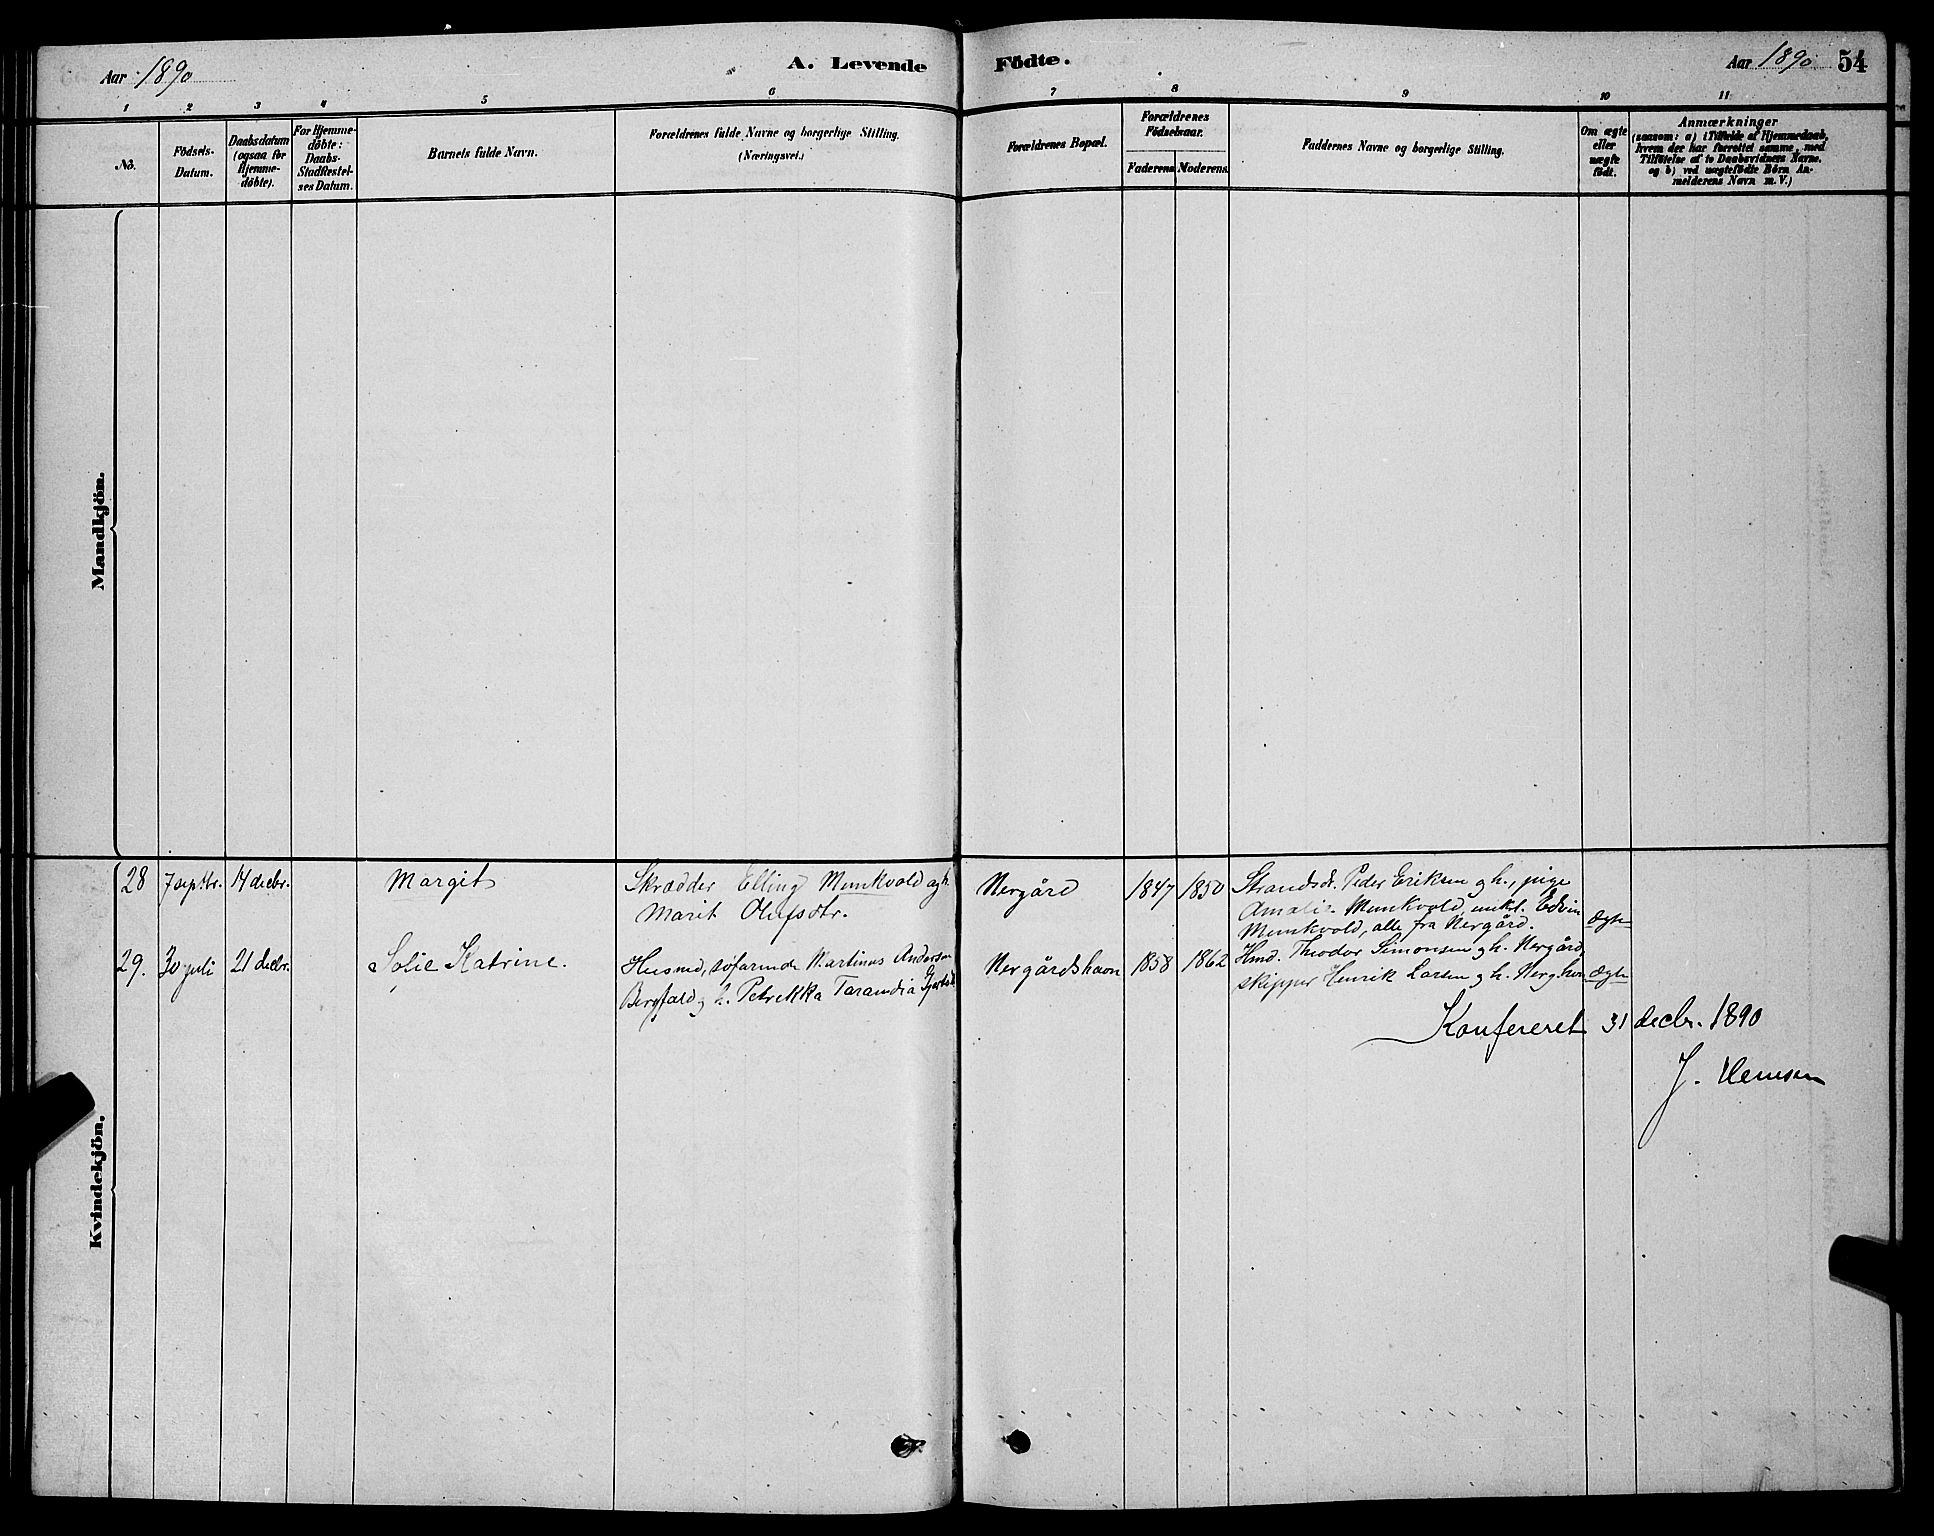 Aar 1890 A. Levende Födte. Aar 1890 54
1 2 3 4 5 6 7 8 9 10 11
No.
Födsels-
Datum.
Daabsdatum
(ogsaa for
Hjemme-
döbte).
For Hjemme-
döbte:
Daabs-
Stadfestel-
ses Datum.
Barnets fulde Navn.
Forældrenes fulde Navne og borgerlige Stilling.
(Næringsvei.)
Forældrenes Bopæl.
Forældrenes
Födselsaar.
Faderens Moderens
Faddernes Navne og borgerlige Stilling.
Om ægte
eller
uægte
födt.
Anmærkninger
(saasom: a) i Tilfælde af Hjemmedaab,
hvem der har forrettet samme, med
Tilföielse af to Daabsvidners Navne.
og b) ved uægtefödte Börn An-
melderens Navn m. V.)
Mandkjön.
Kvindekjön.
28 7 septbr. 14 decbr. Margit
Skrædder Elling Munkvold og h.
Marit Olufsdtr.
Nergård 1847 1850
Strandsdr. Peder Eriksen og h., pige
Amalie Munkvold, unkl. Edvin
Munkvold, alle fra Nergård.
Ægte
29. 30 juli 21 decbr. Sofie Katrine.
Husmd, søfarende Martinus Andersen
Bergfald og h. Petrikka
Nergårdshavn 1858 1862
Hmd. Theodor Simonsen og h. Nergård,
skipper Henrik Larsen og h. Nerg.havn
Ægte
Konfereret 31 decbr. 1890
J.